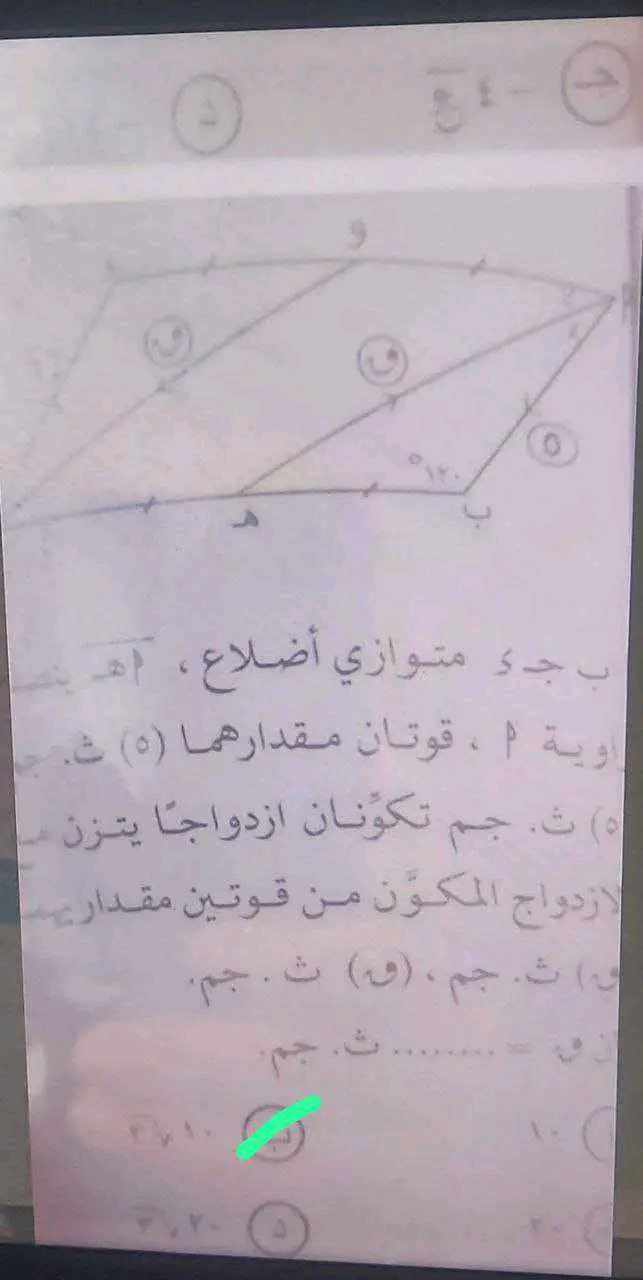 ج - ٤ ع د
و
ق ق
٥
١٢٠°
هـ ب
ب جـ ء متوازي أضلاع ، أهـ
اوية أ ، قوتان مقدارهما (٥) ث.
٥) ث. جم تكوِّنان ازدواجًا يتزن
لازدواج المكوَّن من قوتين مقدار
ق) ث. جم ، (ق) ث. جم.
ق = ........ ث. جم.
١٠ ب ١٠√٣
٢٠ د ٢٠√٣